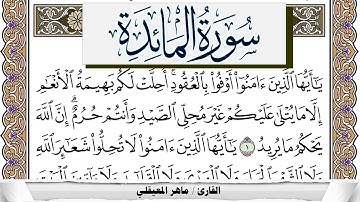 سورة المائدة
يَٰٓأَيُّهَا ٱلَّذِينَ ءَامَنُوٓا۟ أَوْفُوا۟ بِٱلْعُقُودِ أُحِلَّتْ لَكُم بَهِيمَةُ ٱلْأَنْعَٰمِ
إِلَّا مَا يُتْلَىٰ عَلَيْكُمْ غَيْرَ مُحِلِّى ٱلصَّيْدِ وَأَنتُمْ حُرُمٌ إِنَّ ٱللَّهَ
يَحْكُمُ مَا يُرِيدُ ١ يَٰٓأَيُّهَا ٱلَّذِينَ ءَامَنُوا۟ لَا تُحِلُّوا۟ شَعَٰٓئِرَ ٱللَّهِ
القارئ / ماهر المعيقلي